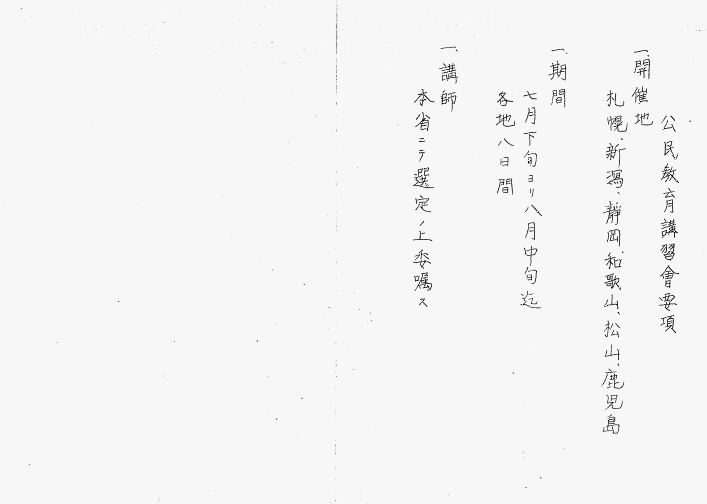 公民教育講習會要項
一、開催地
札幌、新潟、静岡、和歌山、松山、鹿児島
一、期間
七月下旬ヨリ八月中旬迄
各地八日間
一、講師
本省ニテ選定ノ上委嘱ス